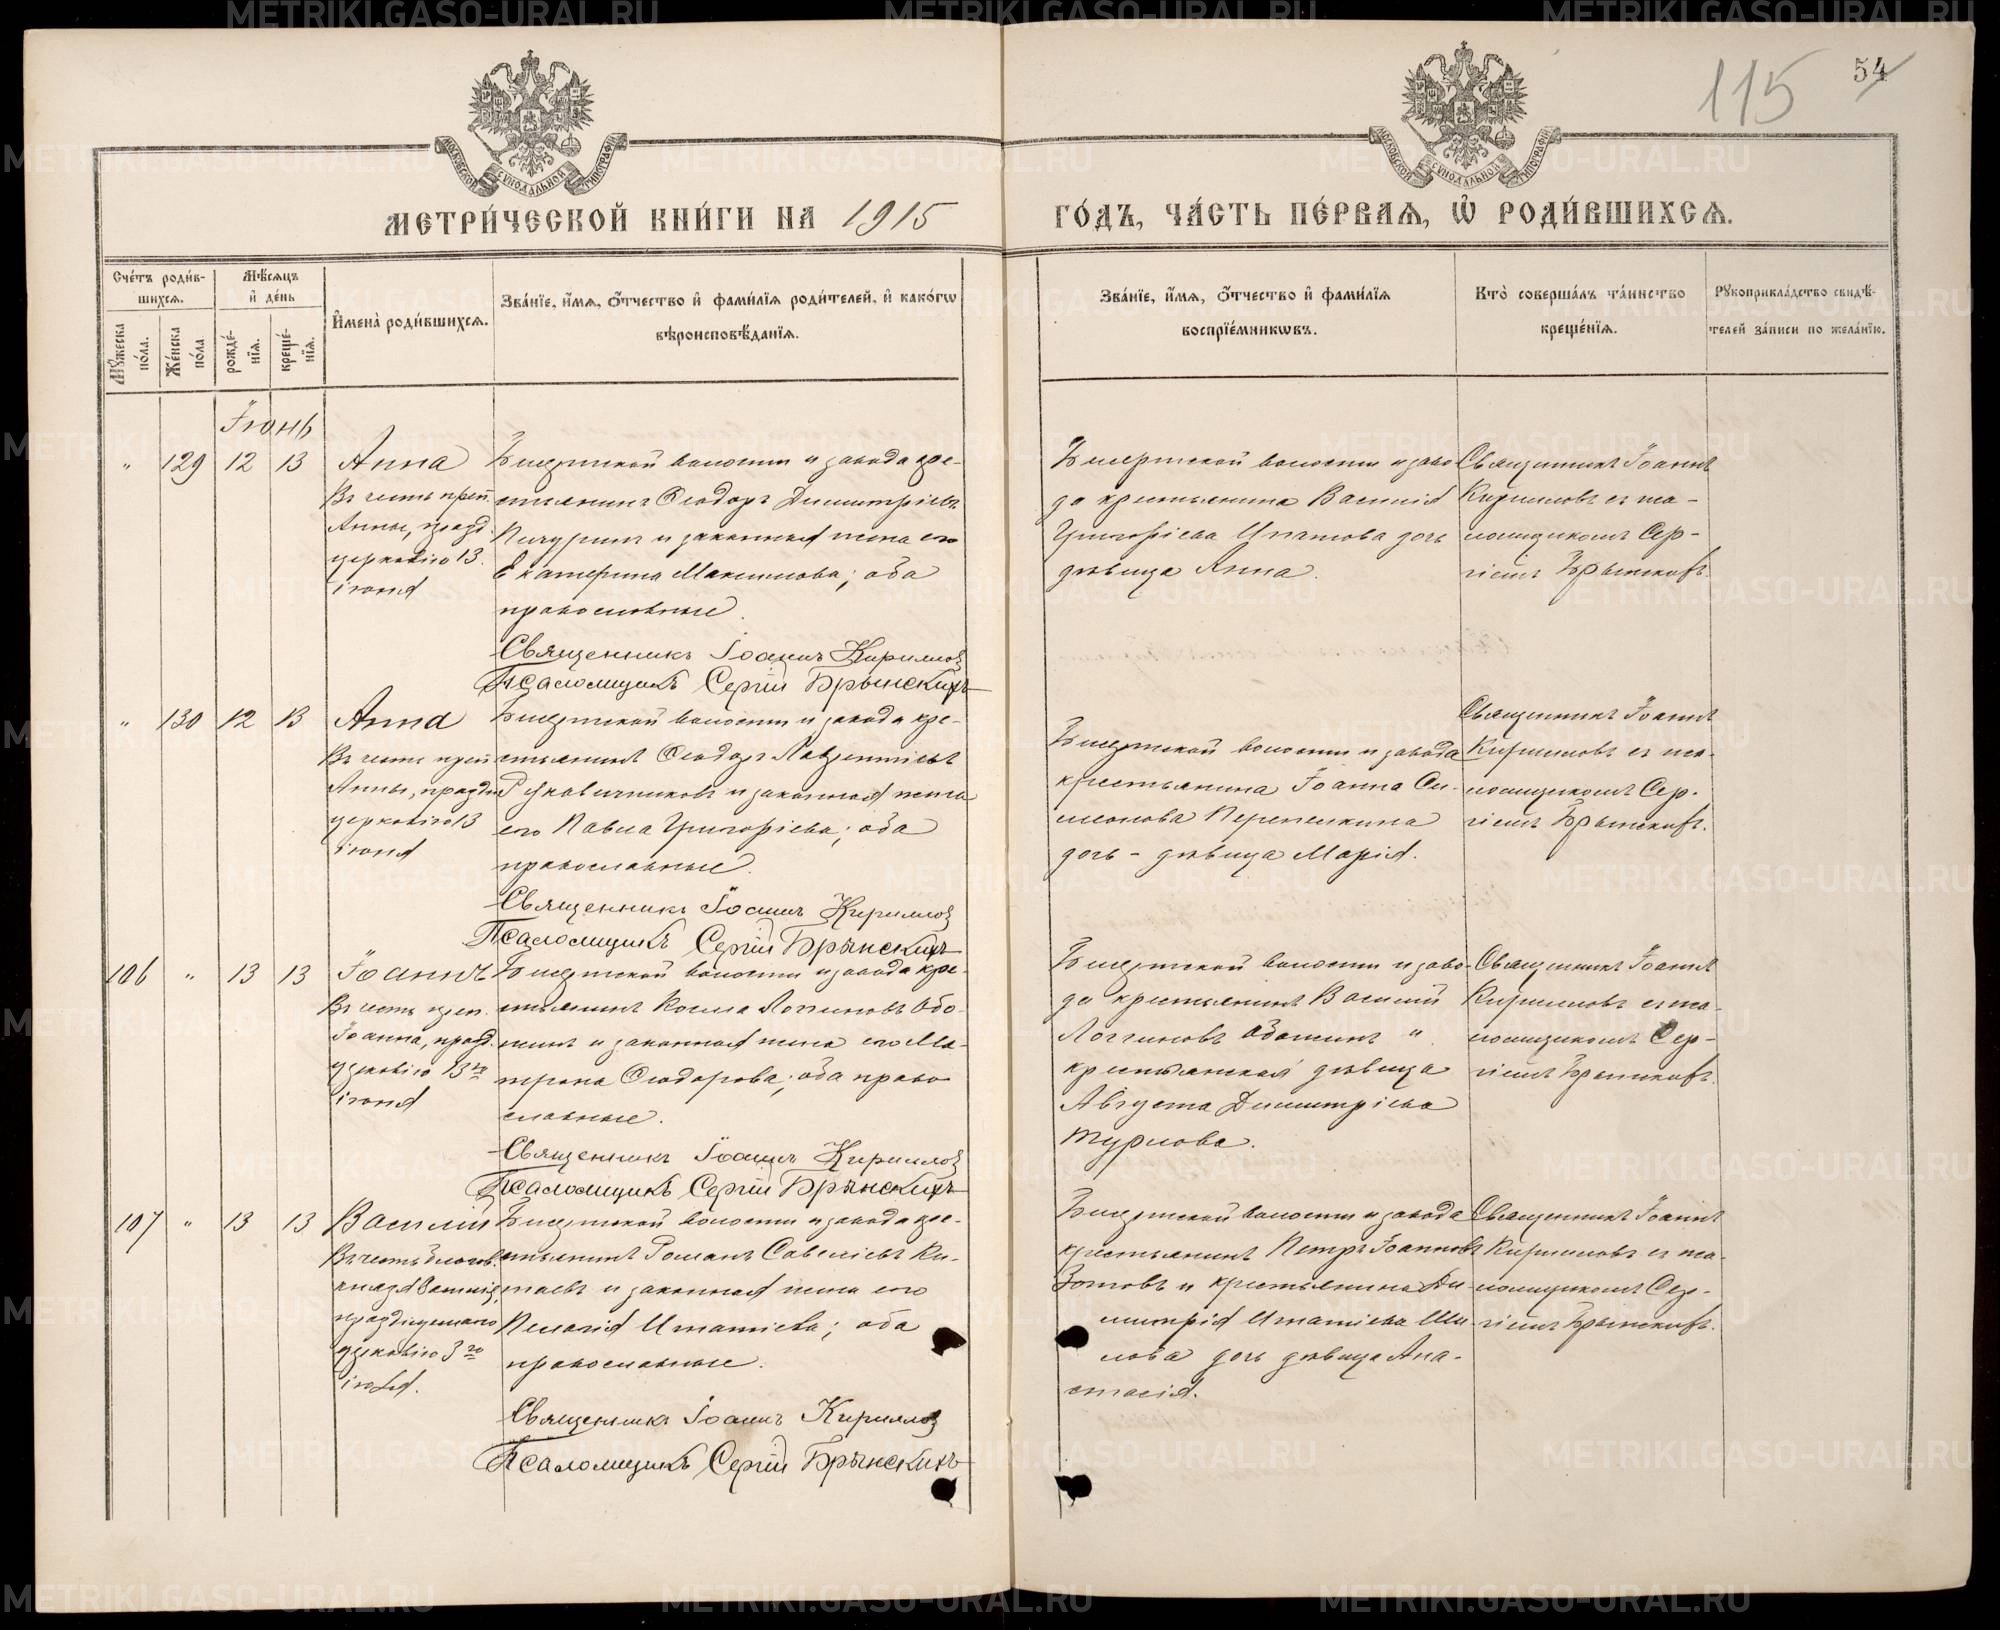 115
54
МЕТРИ́ЧЕСКОЙ КНИ́ГИ НА 1915
ГО́ДЪ, ЧА́СТЬ ПЕ́РВАѦ, Ѽ РОДИ́ВШИХСѦ.
Сче́тъ роди́в-
шихсѧ.
Мꙋ́жеска по́ла.
Же́нска по́ла
Мѣ́сѧцъ
и҆ де́нь
рожде́-
нїѧ.
креще́-
нїѧ.
И҆мена̀ роди́вшихсѧ.
Зва́нїе, и҆́мѧ, ѻ҆́тчество и҆ фами́лїѧ роди́телей, и҆ како́гѡ
вѣроисповѣ́данїѧ.
Зва́нїе, и҆́мѧ, ѻ҆́тчество и҆ фами́лїѧ
воспрїе́мникѡвъ.
Кто̀ соверша́лъ та́инство
креще́нїѧ.
Рꙋкоприкла́дство свидѣ́-
телей за́писи по жела́нїю.
Іюнь
" 129 12 13
Анна
Въ честь преп.
Анны, празд.
церковію 13
іюня
Бисертской волости и завода кре-
стьянинъ Ѳеодоръ Димитріевъ
Пичугинъ и законная жена его
Екатерина Максимова; оба
православные.
Священникъ Іоаннъ Кирилловъ
Псаломщикъ Сергій Брынскихъ
Бисертской волости и заво-
да крестьянина Василія
Григоріева Ипатова дочь
дѣвица Анна.
Священникъ Іоаннъ
Кирилловъ съ пса-
ломщикомъ Сер-
гіемъ Брынскихъ.
" 130 12 13
Анна
Въ честь преп.
Анны, праздн.
церковію 13
іюня
Бисертской волости и завода кре-
стьянинъ Ѳеодоръ Лаврентіевъ
Рукавичниковъ и законная жена
его Павла Григоріева; оба
православные.
Священникъ Іоаннъ Кирилловъ
Псаломщикъ Сергій Брынскихъ
Бисертской волости и завода
крестьянина Іоанна Си-
меонова Перепелкина
дочь - дѣвица Марія.
Священникъ Іоаннъ
Кирилловъ съ пса-
ломщикомъ Сер-
гіемъ Брынскихъ.
106 " 13 13
Іоаннъ
Въ честь преп.
Іоанна, празд.
церковію 13го
іюня
Бисертской волости и завода кре-
стьянинъ Косма Логгиновъ Або-
тинъ и законная жена его Ма-
трона Ѳеодорова; оба право-
славные.
Священникъ Іоаннъ Кирилловъ
Псаломщикъ Сергій Брынскихъ
Бисертской волости и заво-
да крестьянинъ Василій
Логгиновъ и
крестьянская дѣвица
Августа Димитріева
Турлова.
Священникъ Іоаннъ
Кирилловъ съ пса-
ломщикомъ Сер-
гіемъ Брынскихъ.
107 " 13 13
Василій
Въ честь благов.
князя Василія,
празднуемаго
церковію 3го
іюля.
Бисертской волости и завода кре-
стьянинъ Романъ Савеліевъ Ки-
таевъ и законная жена его
Пелагія Игнатіева; оба
православные.
Священникъ Іоаннъ Кирилловъ
Псаломщикъ Сергій Брынскихъ
Бисертской волости и завода
крестьянинъ Петръ Іоанновъ
Зотовъ и крестьянина Ди-
митрія Игнатіева Ши-
лова дочь дѣвица Ана-
стасія.
Священникъ Іоаннъ
Кирилловъ съ пса-
ломщикомъ Сер-
гіемъ Брынскихъ.
METRIKI.GASO-URAL.RU